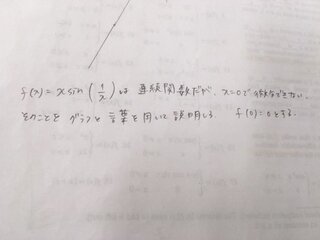 f(x) = x sin(1/x) は 連続関数だが、x=0で微分できない.
そのことを グラフと 言葉を用いて説明しろ f(0)=0とする.